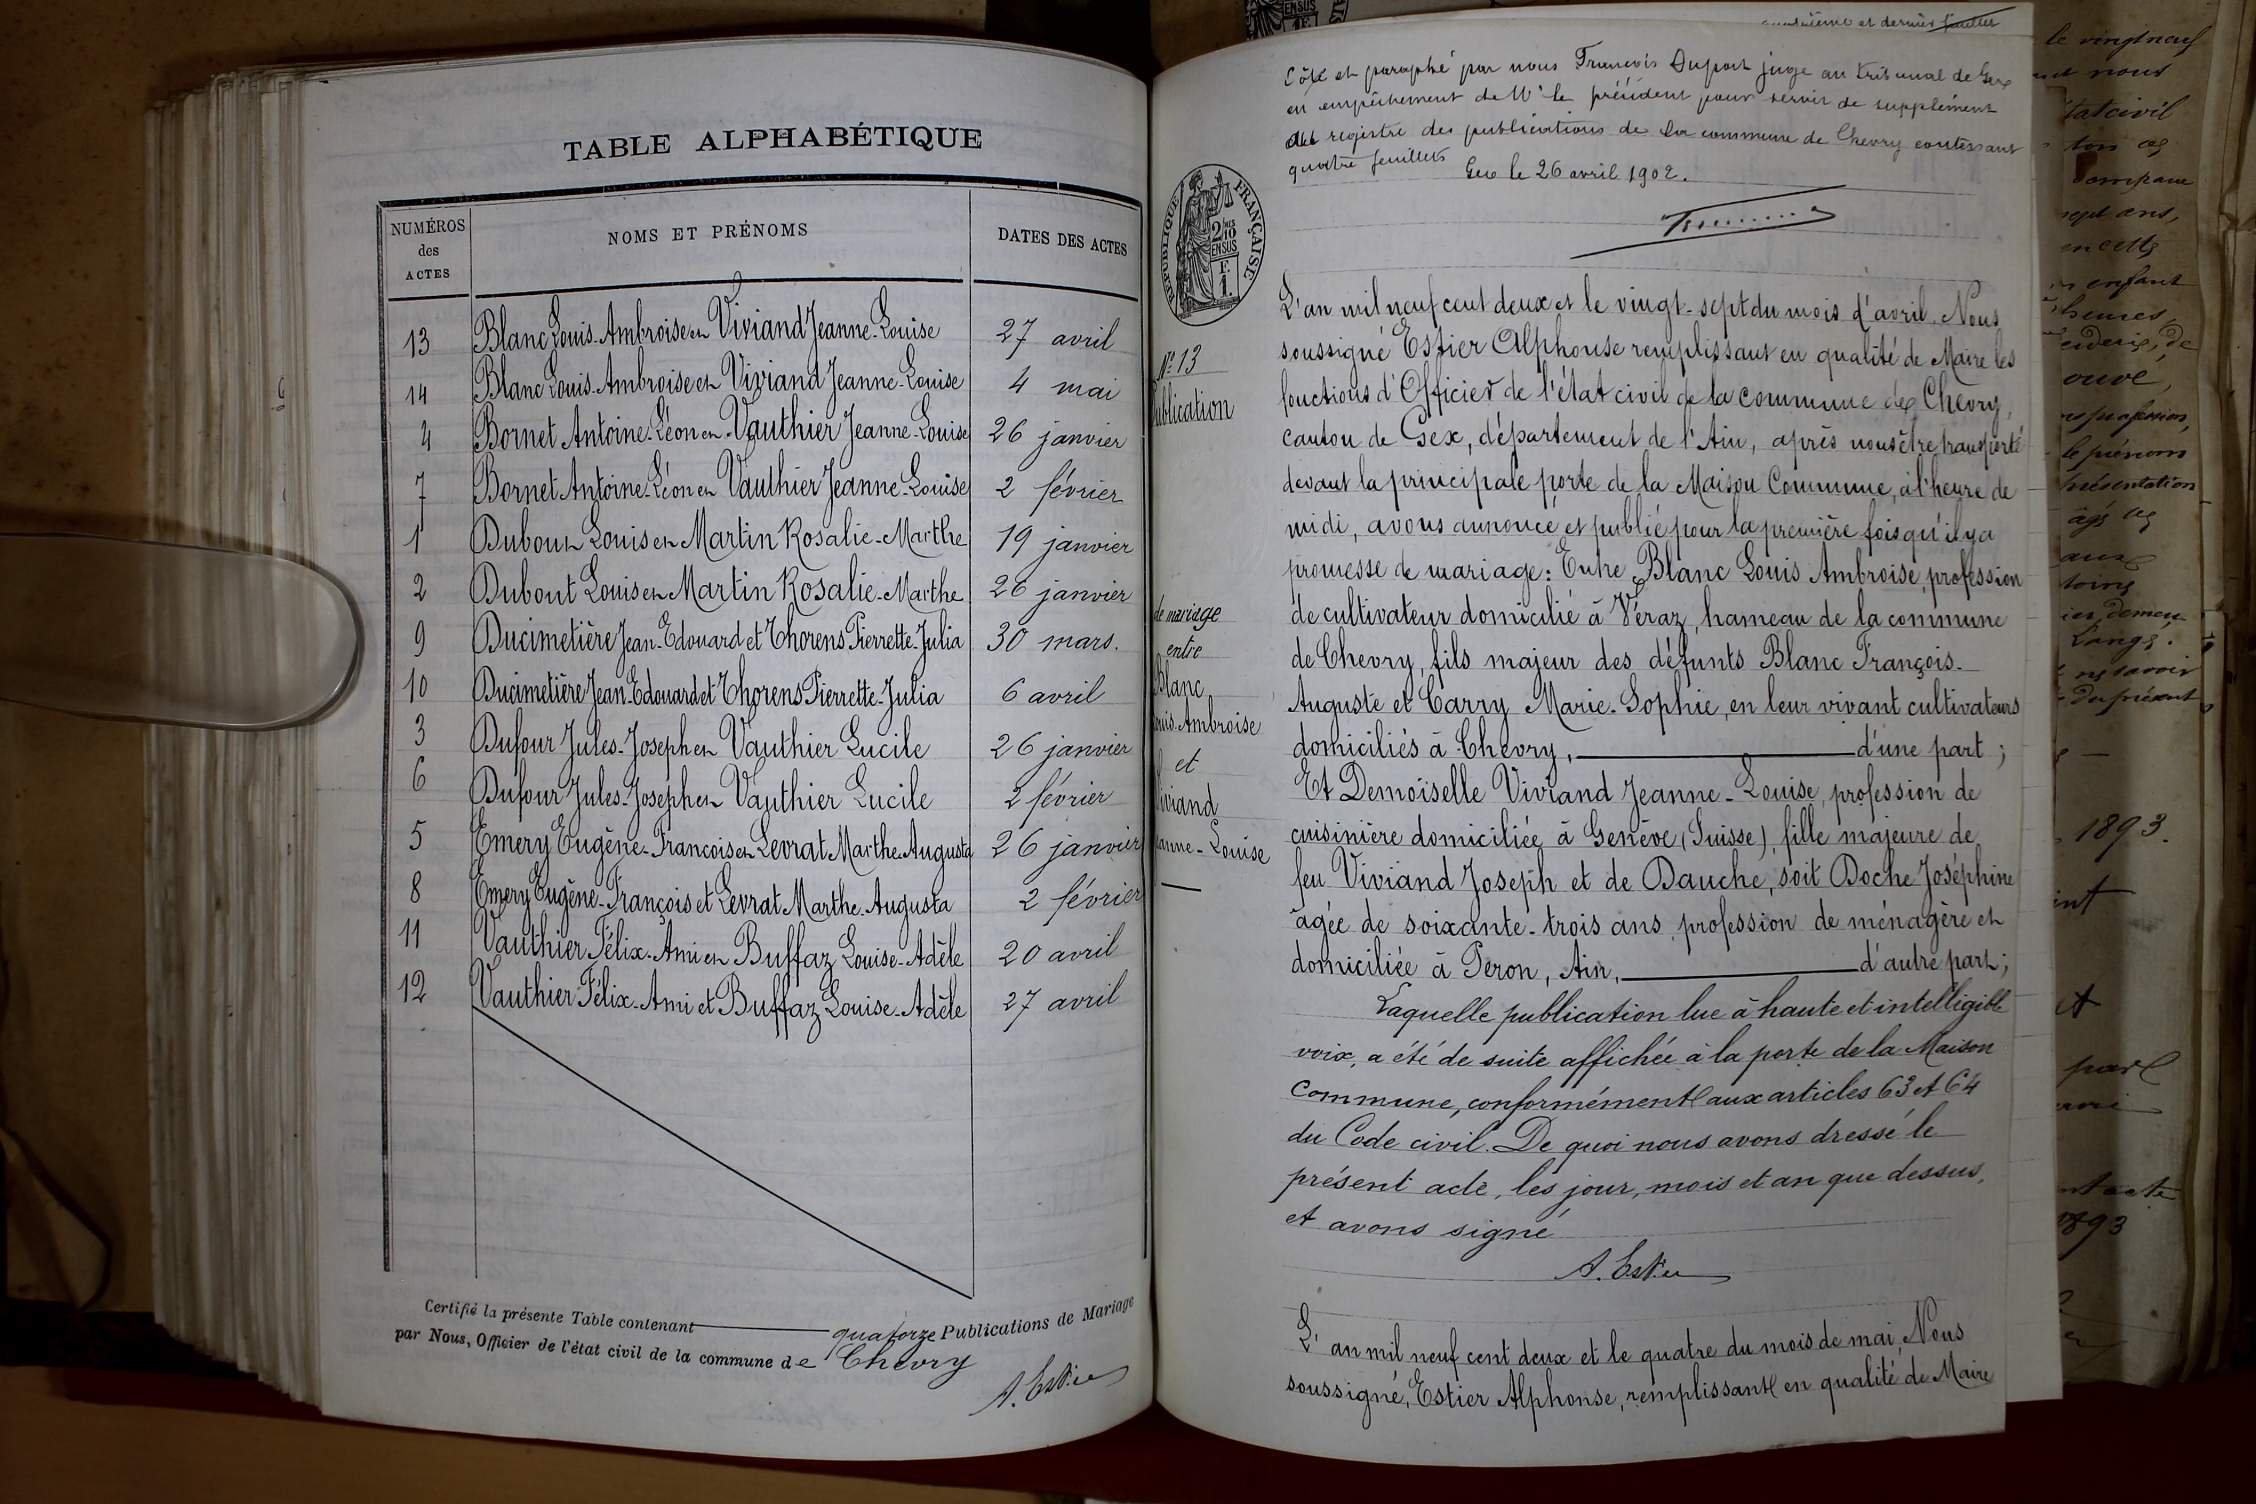 TABLE ALPHABÉTIQUE
NUMÉROS des ACTES NOMS ET PRÉNOMS DATES DES ACTES
13 Blanc Louis-Ambroise et Viviand Jeanne-Louise 27 avril
14 Blanc Louis-Ambroise et Viviand Jeanne-Louise 4 mai
4 Bornet Antoine-Léon et Vauthier Jeanne-Louise 26 janvier
7 Bornet Antoine-Léon et Vauthier Jeanne-Louise 2 février
1 Dubout Louis et Martin Rosalie-Marthe 19 janvier
2 Dubout Louis et Martin Rosalie-Marthe 26 janvier
9 Ducimetière Jean-Edouard et Thorens Pierrette-Julia 30 mars.
10 Ducimetière Jean-Edouard et Thorens Pierrette-Julia 6 avril
3 Dufour Jules-Joseph et Vauthier Lucile 26 janvier
6 Dufour Jules-Joseph et Vauthier Lucile 2 février
5 Emery Eugène-François et Levrat Marthe-Augusta 26 janvier
8 Emery Eugène-François et Levrat Marthe-Augusta 2 février
11 Vauthier Félix-Ami et Buffaz Louise-Adèle 20 avril
12 Vauthier Félix-Ami et Buffaz Louise-Adèle 27 avril
Certifié la présente Table contenant quatorze Publications de Mariage
par Nous, Officier de l'état civil de la commune de Chevry
A. Estier
et dernier feuillet
Côté et paraphé par nous François Dupont juge au tribunal de Gex
en empêchement de Mr le président pour servir de supplément
au registre des publications de la commune de Chevry contenant
quatre feuillets
Gex le 26 avril 1902.
RÉPUBLIQUE FRANÇAISE
2/10 EN SUS
F.
1.
Nº 13
Publication
de mariage
entre
Blanc
Louis-Ambroise
et
Viviand
Jeanne-Louise
L'an mil neuf cent deux et le vingt-sept du mois d'avril, Nous
soussigné Estier Alphonse remplissant en qualité de Maire les
fonctions d'Officier de l'état civil de la commune de Chevry,
canton de Gex, département de l'Ain, après nous être transporté
devant la principale porte de la Maison Commune, à l'heure de
midi, avons annoncé et publié pour la première fois qu'il y a
promesse de mariage : Entre Blanc Louis Ambroise, profession
de cultivateur domicilié à Véraz, hameau de la commune
de Chevry, fils majeur des défunts Blanc François-
Auguste et Carry Marie-Sophie, en leur vivant cultivateurs
domiciliés à Chevry, d'une part ;
Et Demoiselle Viviand Jeanne-Louise, profession de
cuisinière domiciliée à Genève (Suisse), fille majeure de
feu Viviand Joseph et de Dauche, soit Doche Joséphine
âgée de soixante-trois ans, profession de ménagère et
domiciliée à Peron, Ain, d'autre part ;
Laquelle publication lue à haute et intelligible
voix, a été de suite affichée à la porte de la Maison
Commune, conformément aux articles 63 et 64
du Code civil. De quoi nous avons dressé le
présent acte, les jour, mois et an que dessus,
et avons signé
A. Estier
L'an mil neuf cent deux et le quatre du mois de mai, Nous
soussigné, Estier Alphonse, remplissant en qualité de Maire
le vingt neuf
nous
état civil
sept ans,
en cette
enfant
heures,
profession,
le prénom
présentation
demeu
Lange.
savoir
du présent
1893.
par
acte
1893